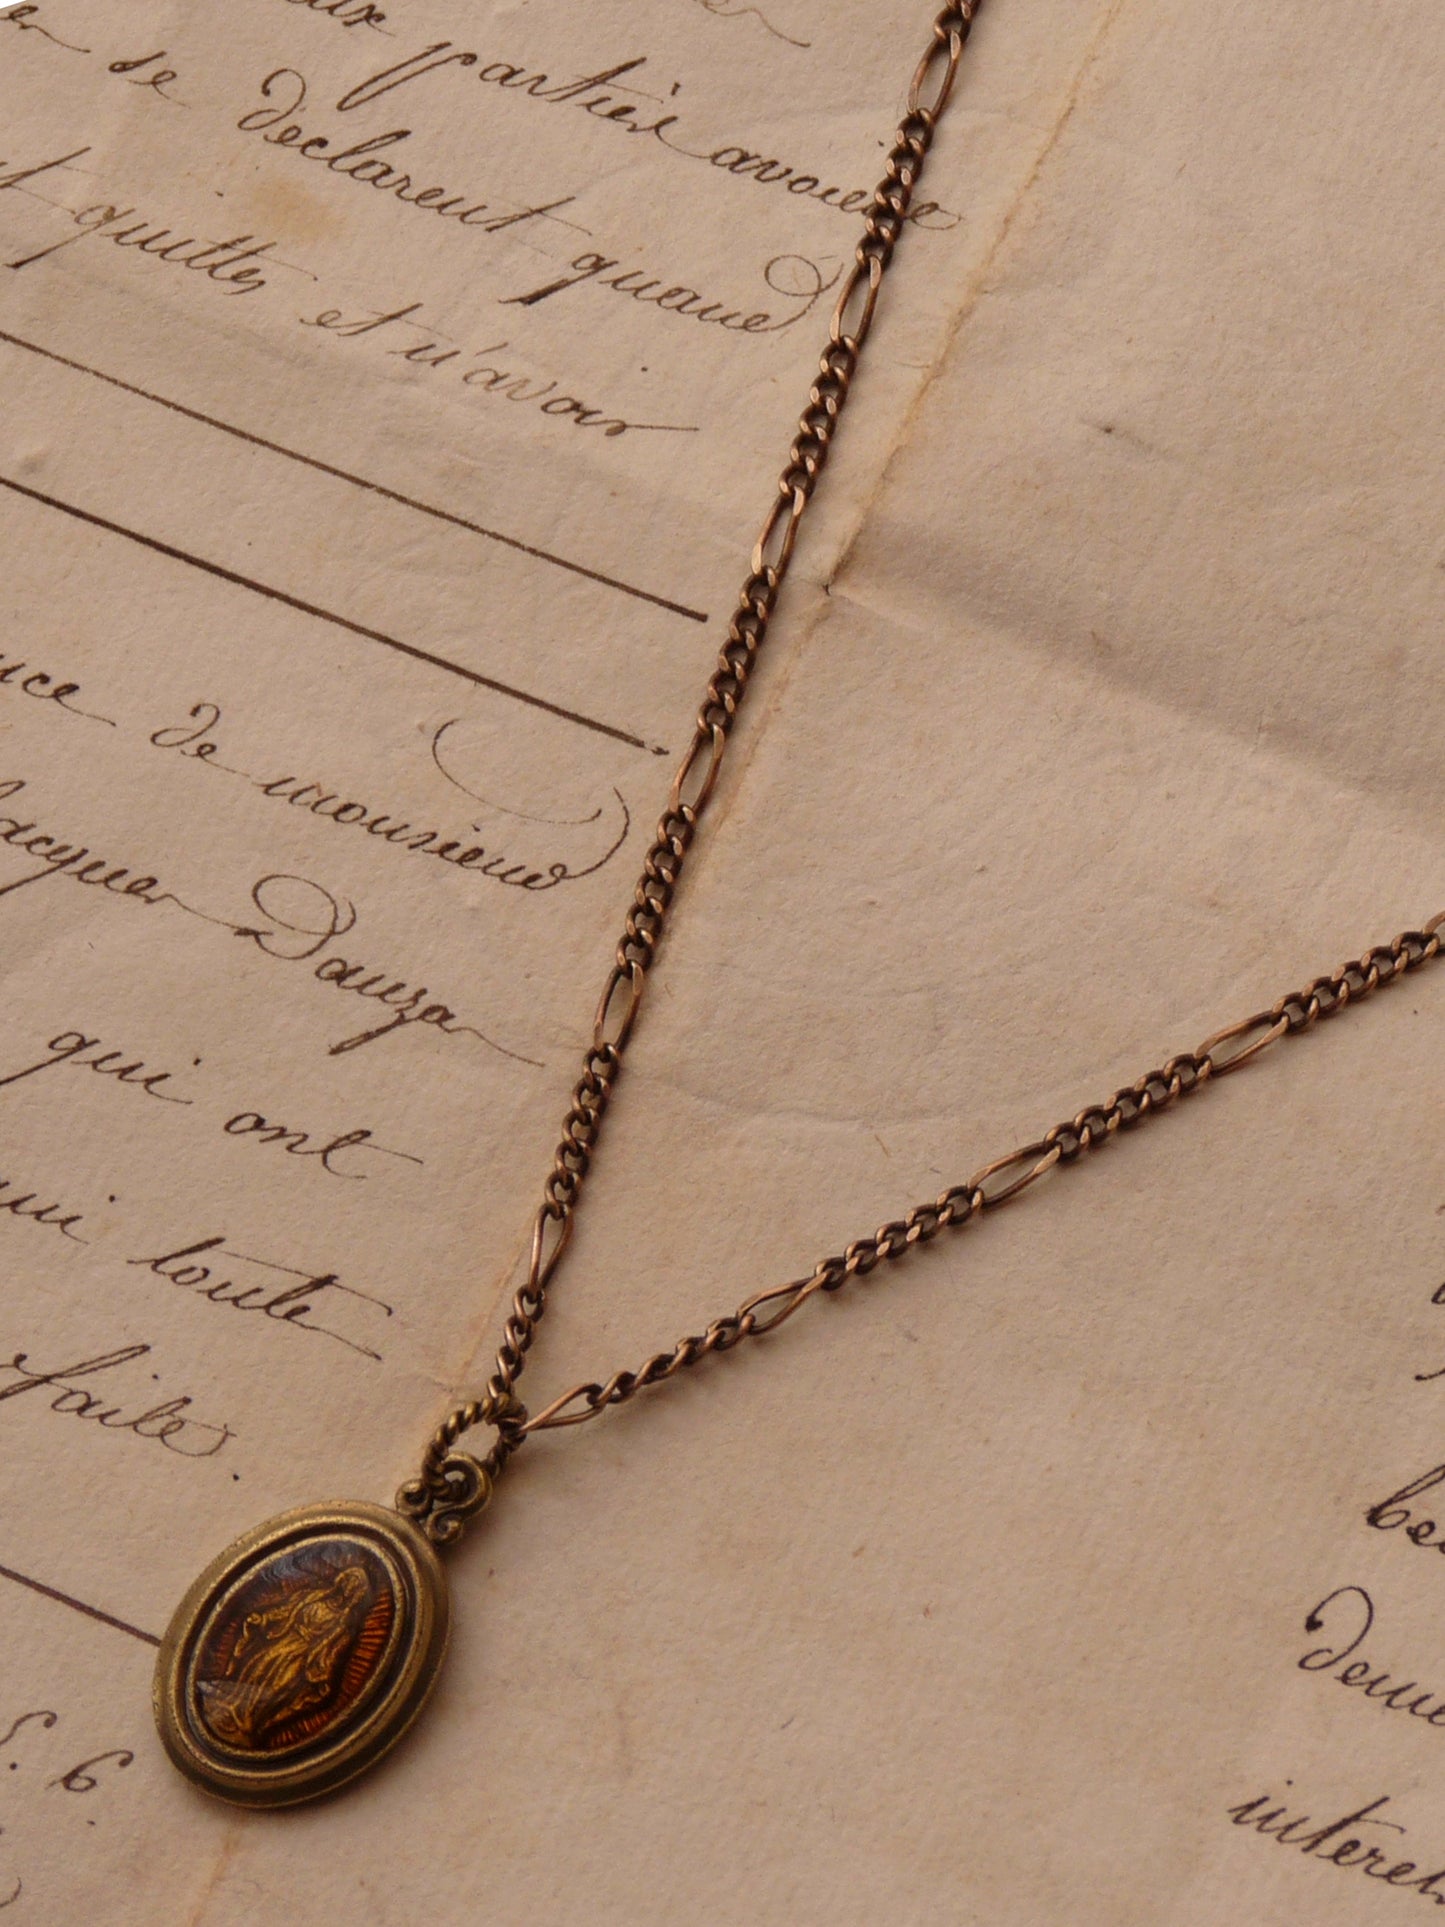 aux partiès avoir
se declarent quand
t quittes et n'avoir
de monsieur
Jacques Dauza
qui ont
qui toute
faite.
5. 6.
be
deme
interet